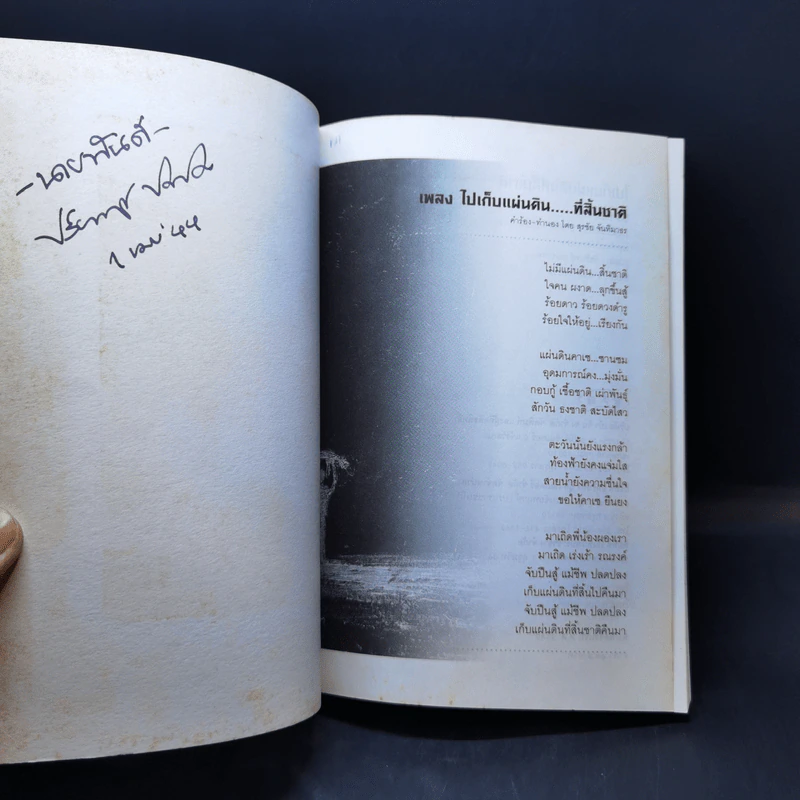 -นายพันดี-
1 เมย' 44
เพลง ไปเก็บแผ่นดิน.....ที่สิ้นชาติ
คำร้อง-ทำนอง โดย สุรชัย จันทิมาธร
ไม่มีแผ่นดิน...สิ้นชาติ
ใจคน ผงาด...ลุกขึ้นสู้
ร้อยดาว ร้อยดวงดำรู
ร้อยใจให้อยู่...เรียงกัน
แผ่นดินคาเซ...ซานซม
อุดมการณ์คง...มุ่งมั่น
กอบกู้ เชื้อชาติ เผ่าพันธุ์
สักวัน ธงชาติ สะบัดไสว
ตะวันนั้นยังแรงกล้า
ท้องฟ้ายังคงแจ่มใส
สายน้ำยังความชื่นใจ
ขอให้คาเซ ยืนยง
มาเถิดพี่น้องผองเรา
มาเถิด เร่งเร้า รณรงค์
จับปืนสู้ แม้ชีพ ปลดปลง
เก็บแผ่นดินที่สิ้นไปคืนมา
จับปืนสู้ แม้ชีพ ปลดปลง
เก็บแผ่นดินที่สิ้นชาติคืนมา